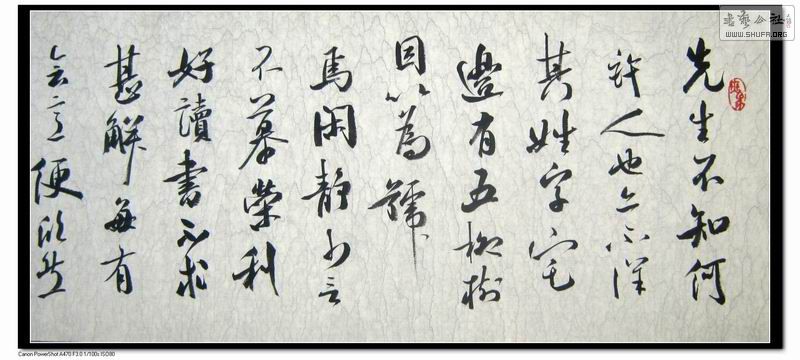 先生不知何
許人也亦不詳
其姓字宅
邊有五柳樹
因以為號
焉閑靜少言
不慕榮利
好讀書不求
甚解每有
會意便欣然
書藝公社
WWW.SHUFA.ORG
Canon PowerShot A470 F3.0 1/100s ISO80